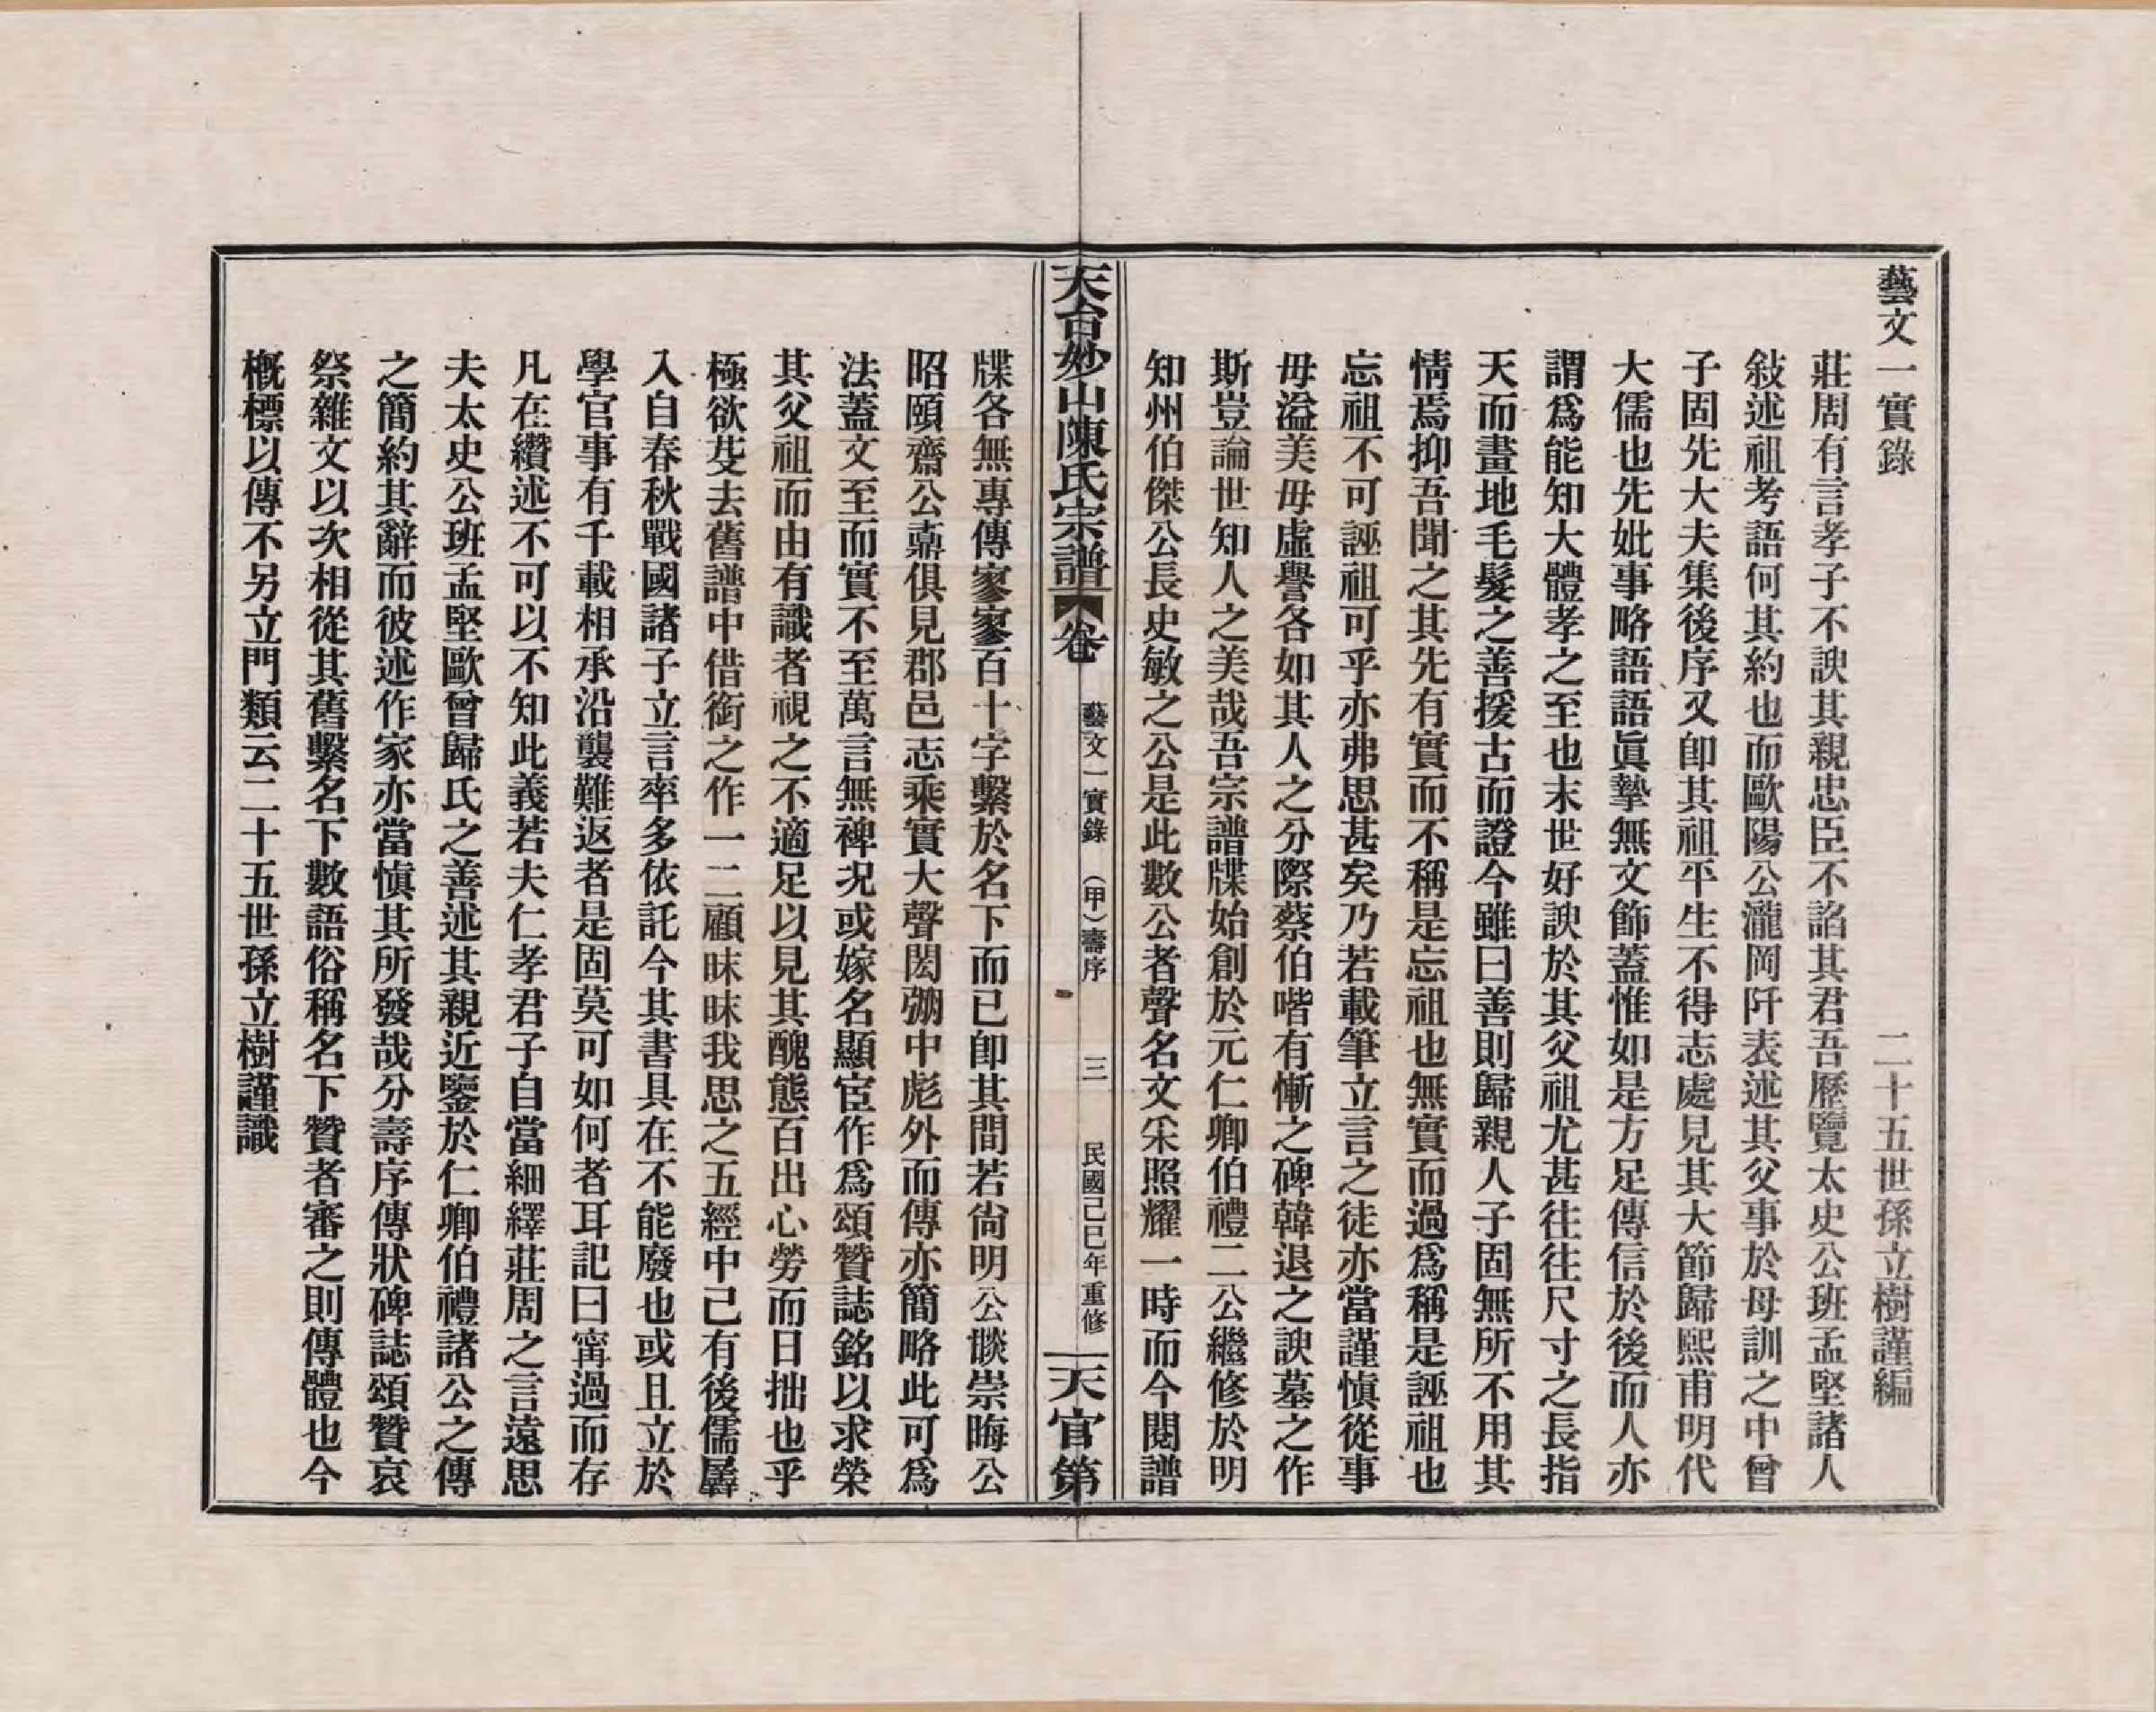 藝文一實錄
二十五世孫立樹謹編
莊周有言孝子不諛其親忠臣不諂其君吾歷覽太史公班孟堅諸人
敍述祖考語何其約也而歐陽公瀧岡阡表述其父事於母訓之中曾
子固先大夫集後序又卽其祖平生不得志處見其大節歸熙甫明代
大儒也先妣事略語語眞摯無文飾蓋惟如是方足傳信於後而人亦
謂爲能知大體孝之至也末世好諛於其父祖尤甚往往尺寸之長指
天而畫地毛髮之善援古而證今雖曰善則歸親人子固無所不用其
情焉抑吾聞之其先有實而不稱是忘祖也無實而過爲稱是誣祖也
忘祖不可誣祖可乎亦弗思甚矣乃若載筆立言之徒亦當謹愼從事
毋溢美毋虛譽各如其人之分際蔡伯喈有慚之碑韓退之諛墓之作
斯豈論世知人之美哉吾宗譜牒始創於元仁卿伯禮二公繼修於明
知州伯傑公長史敏之公是此數公者聲名文采照耀一時而今閱譜
天台妙山陳氏宗譜 卷 藝文一實錄 (甲)壽序 三 民國己巳年重修 天官第
牒各無專傳寥寥百十字繫於名下而已卽其間若尙明公惔崇晦公
昭頤齋公鼒俱見郡邑志乘實大聲閎弸中彪外而傳亦簡略此可爲
法蓋文至而實不至萬言無裨況或嫁名顯宦作爲頌贊誌銘以求榮
其父祖而由有識者視之不適足以見其醜態百出心勞而日拙也乎
極欲芟去舊譜中借銜之作一二顧昧昧我思之五經中已有後儒羼
入自春秋戰國諸子立言率多依託今其書具在不能廢也或且立於
學官事有千載相承沿襲難返者是固莫可如何者耳記曰甯過而存
凡在纘述不可以不知此義若夫仁孝君子自當細繹莊周之言遠思
夫太史公班孟堅歐曾歸氏之善述其親近鑒於仁卿伯禮諸公之傳
之簡約其辭而彼述作家亦當愼其所發哉分壽序傳狀碑誌頌贊哀
祭雜文以次相從其舊繫名下數語俗稱名下贊者審之則傳體也今
槪標以傳不另立門類云二十五世孫立樹謹識